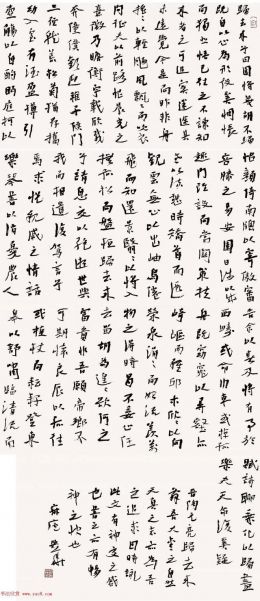 歸去來兮田園將蕪胡不歸
既自以心為形役奚惆悵
而獨悲悟已往之不諫知
來者之可追實迷途其
未遠覺今是而昨非舟
搖搖以輕颺風飄飄而吹衣
問征夫以前路恨晨光之
熹微乃瞻衡宇載欣載
奔僮僕歡迎稚子候門
三徑就荒松菊猶存攜
幼入室有酒盈樽引
壺觴以自酌眄庭柯以
怡顏倚南窗以寄傲審
容膝之易安園日涉以成
趣門雖設而常關策扶
老以流憩時矯首而遐
觀雲無心以出岫鳥倦
飛而知還景翳翳以將入
撫孤松而盤桓歸去來
兮請息交以絕遊世與
我而相遺復駕言兮
焉求悅親戚之情話
樂琴書以消憂農人
告余以春及將有事於
西疇或命巾車或棹孤
舟既窈窕以尋壑亦
崎嶇而經邱木欣欣以向
榮泉涓涓而始流羨萬
物之得時曷不委心任
去留胡為遑遑欲何之
富貴非吾願帝鄉不
可期懷良辰以孤往
或植杖而耘耔登東
皋以舒嘯臨清流而
賦詩聊乘化以歸盡
樂夫天命復奚疑
晉陶元亮歸去來
辭之自然
天真之為吾
之追求因時時
此文有神交之感
也書之亦有暢
神之快也